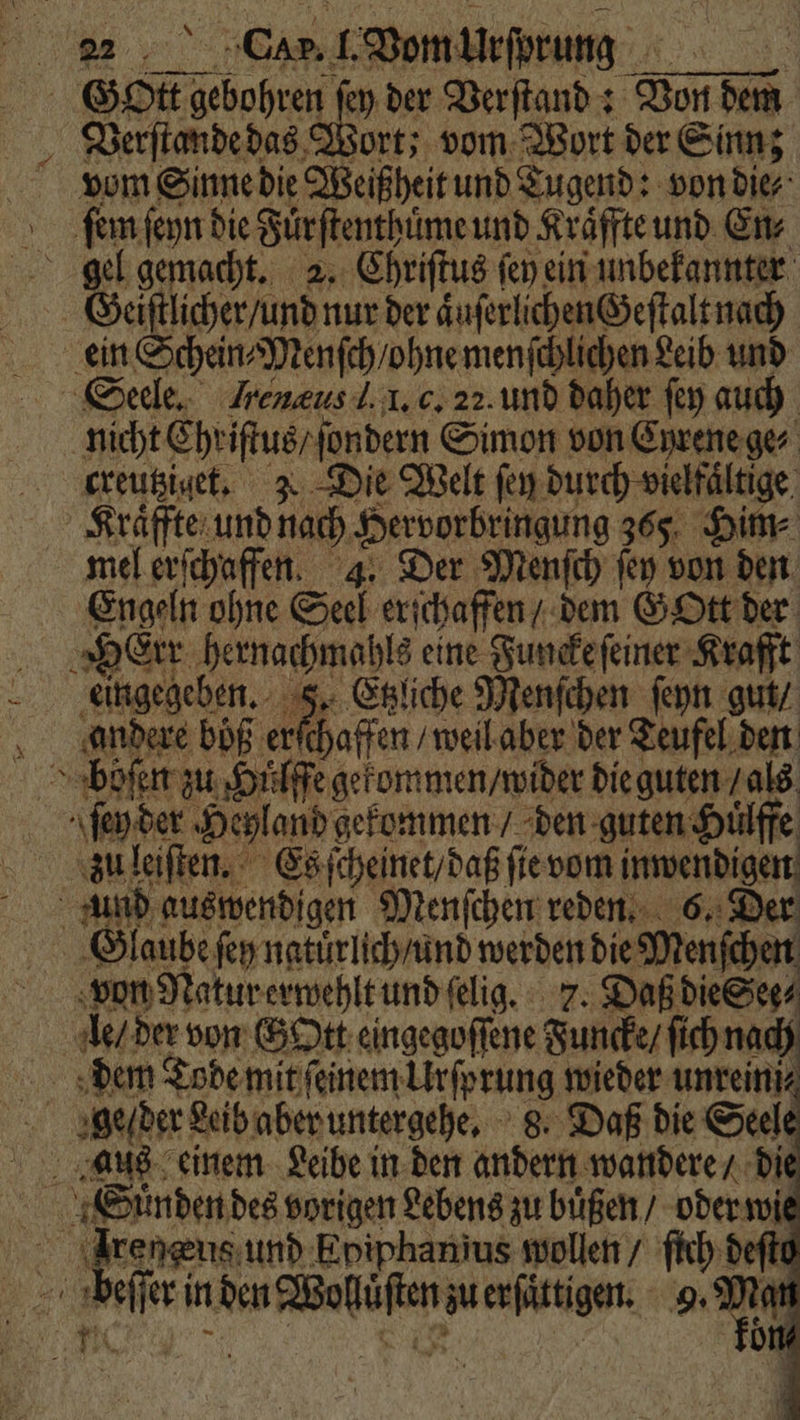 22 Cap. I. Vom Urſprung
GOtt gebohren ſey der Verſtand: Von dem
Verſtande das Wort; vom Wort der Sinn;
vom Sinne die Weißheit und Tugend: von die⸗
ſem ſeyn die Fuͤrſtenthuͤme und Kraͤffte und En⸗
gel gemacht. 2. Chriſtus ſey ein unbekannter
Geiſtlicher/und nur der aͤuſerlichen Geſtalt nach
ein Schein⸗Menſch/ohne menſchlichen Leib und
Seele. Irenæus l. 1. c. 22. und daher ſey auch
nicht Chriſtus/ſondern Simon von Cyrene ge⸗
creutziget. 3. Die Welt ſey durch vielfaͤltige
Kraͤffte und nach Hervorbringung 365. Him⸗
mel erſchaffen. 4. Der Menſch ſey von den
Engeln ohne Seel erſchaffen/ dem GOtt der
HErr hernachmahls eine Funcke ſeiner Krafft
eingegeben. 5. Etzliche Menſchen ſeyn gut/
andere boͤß erſchaffen/weil aber der Teufel den
boͤſen zu Huͤlffe gekommen/wider die guten/als
ſey der Heyland gekommen/ den guten Huͤlffe
zu leiſten. Es ſcheinet/daß ſie vom inwendigen
und auswendigen Menſchen reden. 6. Der
Glaube ſey natuͤrlich/und werden die Menſchen
von Natur erwehlt und ſelig. 7. Daß die See⸗
le/ der von GOtt eingegoſſene Funcke/ ſich nach
dem Tode mit ſeinem Urſprung wieder unreini⸗
ge/der Leib aber untergehe. 8. Daß die Seele
aus einem Leibe in den andern wandere/ die
Suͤnden des vorigen Lebens zu buͤßen/ oder wie
Irenæus und Epiphanius wollen/ ſich deſto
beſſer in den Wolluͤſten zu erſaͤttigen. 9. Man
koͤn⸗